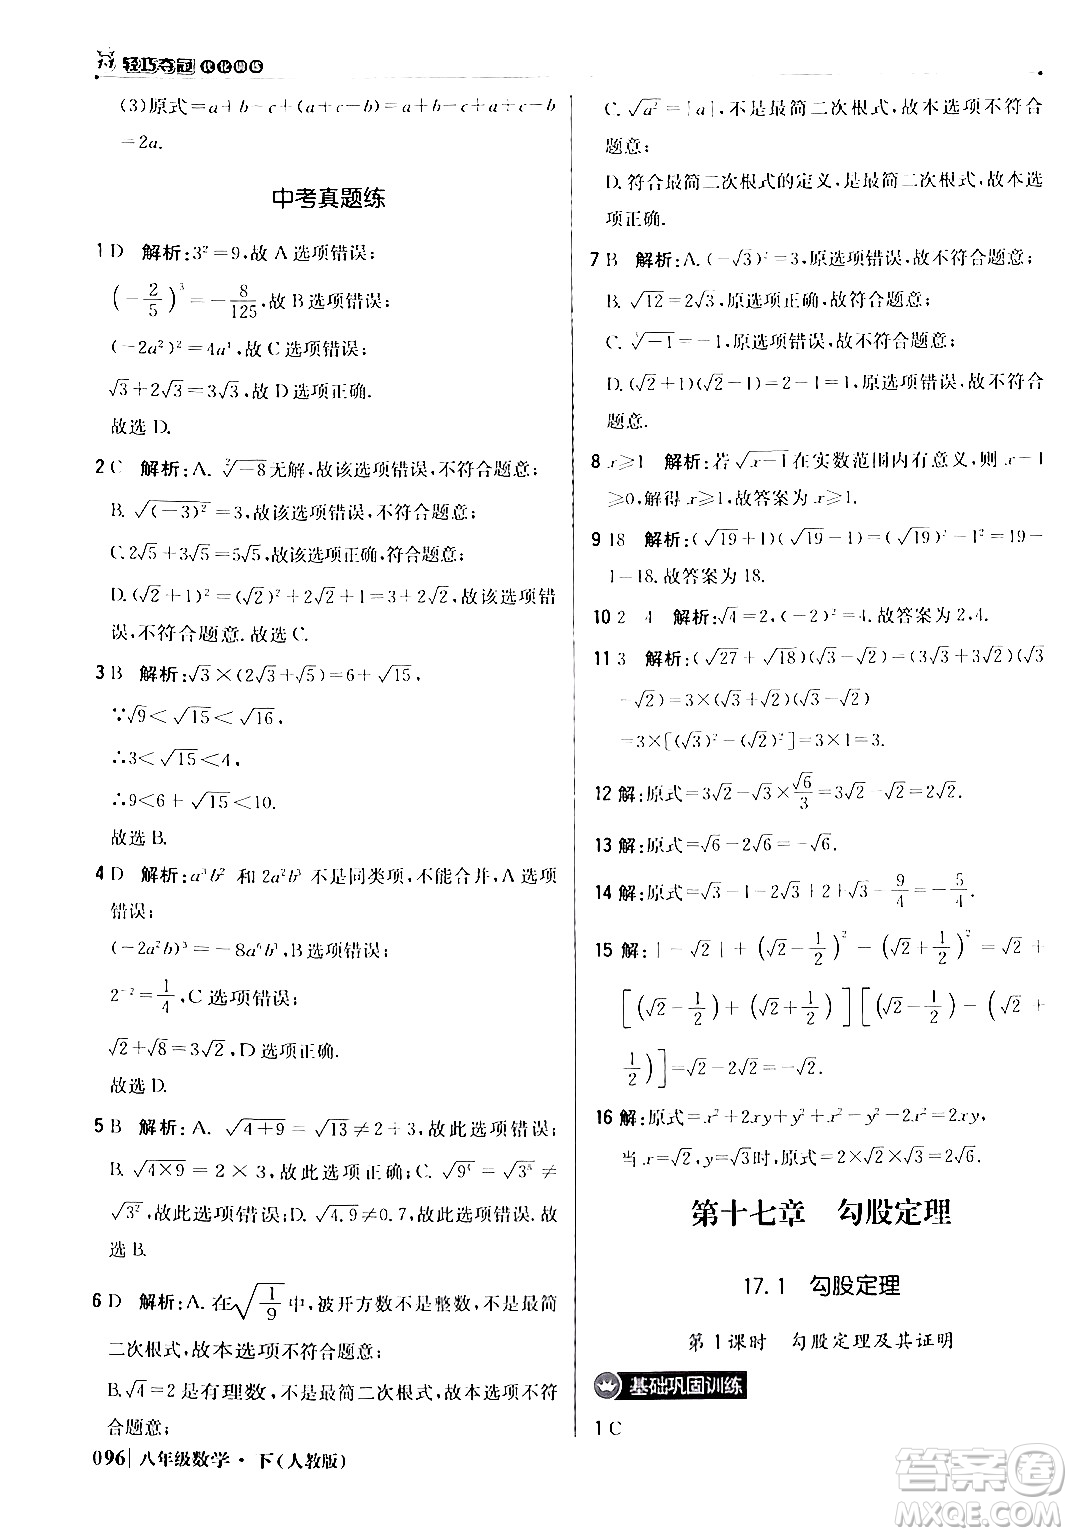 轻巧夺冠 优化训练
(3)原式=a+b-c+(a+c-b)=a+b-c+a+c-b
=2a.
中考真题练
1 D 解析:3²=9,故 A 选项错误;
(-2/5)³=-8/125,故 B 选项错误;
(-2a²)²=4a⁴,故 C 选项错误;
√3+2√3=3√3,故 D 选项正确.
故选 D.
2 C 解析:A. √-8无解,故该选项错误,不符合题意;
B. √(-3)²=3,故该选项错误,不符合题意;
C. 2√5+3√5=5√5,故该选项正确,符合题意;
D. (√2+1)²=(√2)²+2√2+1=3+2√2,故该选项错
误,不符合题意.故选 C.
3 B 解析:√3×(2√3+√5)=6+√15.
∵√9<√15<√16.
∴3<√15<4.
∴9<6+√15<10.
故选 B.
4 D 解析:a³b² 和 2a²b³ 不是同类项,不能合并,A 选项
错误;
(-2a²b)³=-8a⁶b³,B 选项错误;
2⁻²=1/4,C 选项错误;
√2+√8=3√2,D 选项正确.
故选 D.
5 B 解析:A. √4+9=√13≠2+3,故此选项错误;
B. √4×9=2×3,故此选项正确;C. √9⁴=√3²≠
√3²,故此选项错误;D. √4.9≠0.7,故此选项错误.故
选 B.
6 D 解析:A.在√1/9中,被开方数不是整数,不是最简
二次根式,故本选项不符合题意;
B.√4=2 是有理数,不是最简二次根式,故本选项不符
合题意;
096 八年级数学·下(人教版)
C. √a²=|a|,不是最简二次根式,故本选项不符合
题意;
D.符合最简二次根式的定义,是最简二次根式,故本选
项正确.
7 B 解析:A. (-√3)²=3,原选项错误,故不符合题意;
B. √12=2√3,原选项正确,故符合题意;
C. ³√-1=-1,原选项错误,故不符合题意;
D.(√2+1)(√2-1)=2-1=1,原选项错误,故不符合
题意.
8 x≥1 解析:若√x-1在实数范围内有意义,则 x-1
≥0,解得 x≥1.故答案为 x≥1.
9 18 解析:(√19+1)(√19-1)=(√19)²-1²=19-
1=18.故答案为 18.
10 2 4 解析:√4=2,(-2)²=4.故答案为 2,4.
11 3 解析:(√27+√18)(√3-√2)=(3√3+3√2)(√3
-√2)=3×(√3+√2)(√3-√2)
=3×[(√3)²-(√2)²]=3×1=3.
12 解:原式=3√2-√3×√6/3=3√2-√2=2√2.
13 解:原式=√6-2√6=-√6.
14 解:原式=√3-1-2√3+2+√3-9/4=-5/4.
15 解:|-√2|+(√2-1/2)²-(√2+1/2)²=√2+
[(√2-1/2)+(√2+1/2)][(√2-1/2)-(√2+
1/2)]=√2-2√2=-√2.
16 解:原式=x²+2xy+y²-y²-2x²+x²=2xy,
当 x=√2,y=√3时,原式=2×√2×√3=2√6.
第十七章 勾股定理
17.1 勾股定理
第 1 课时 勾股定理及其证明
基础巩固训练
1 C
答案圈
MXQE.COM